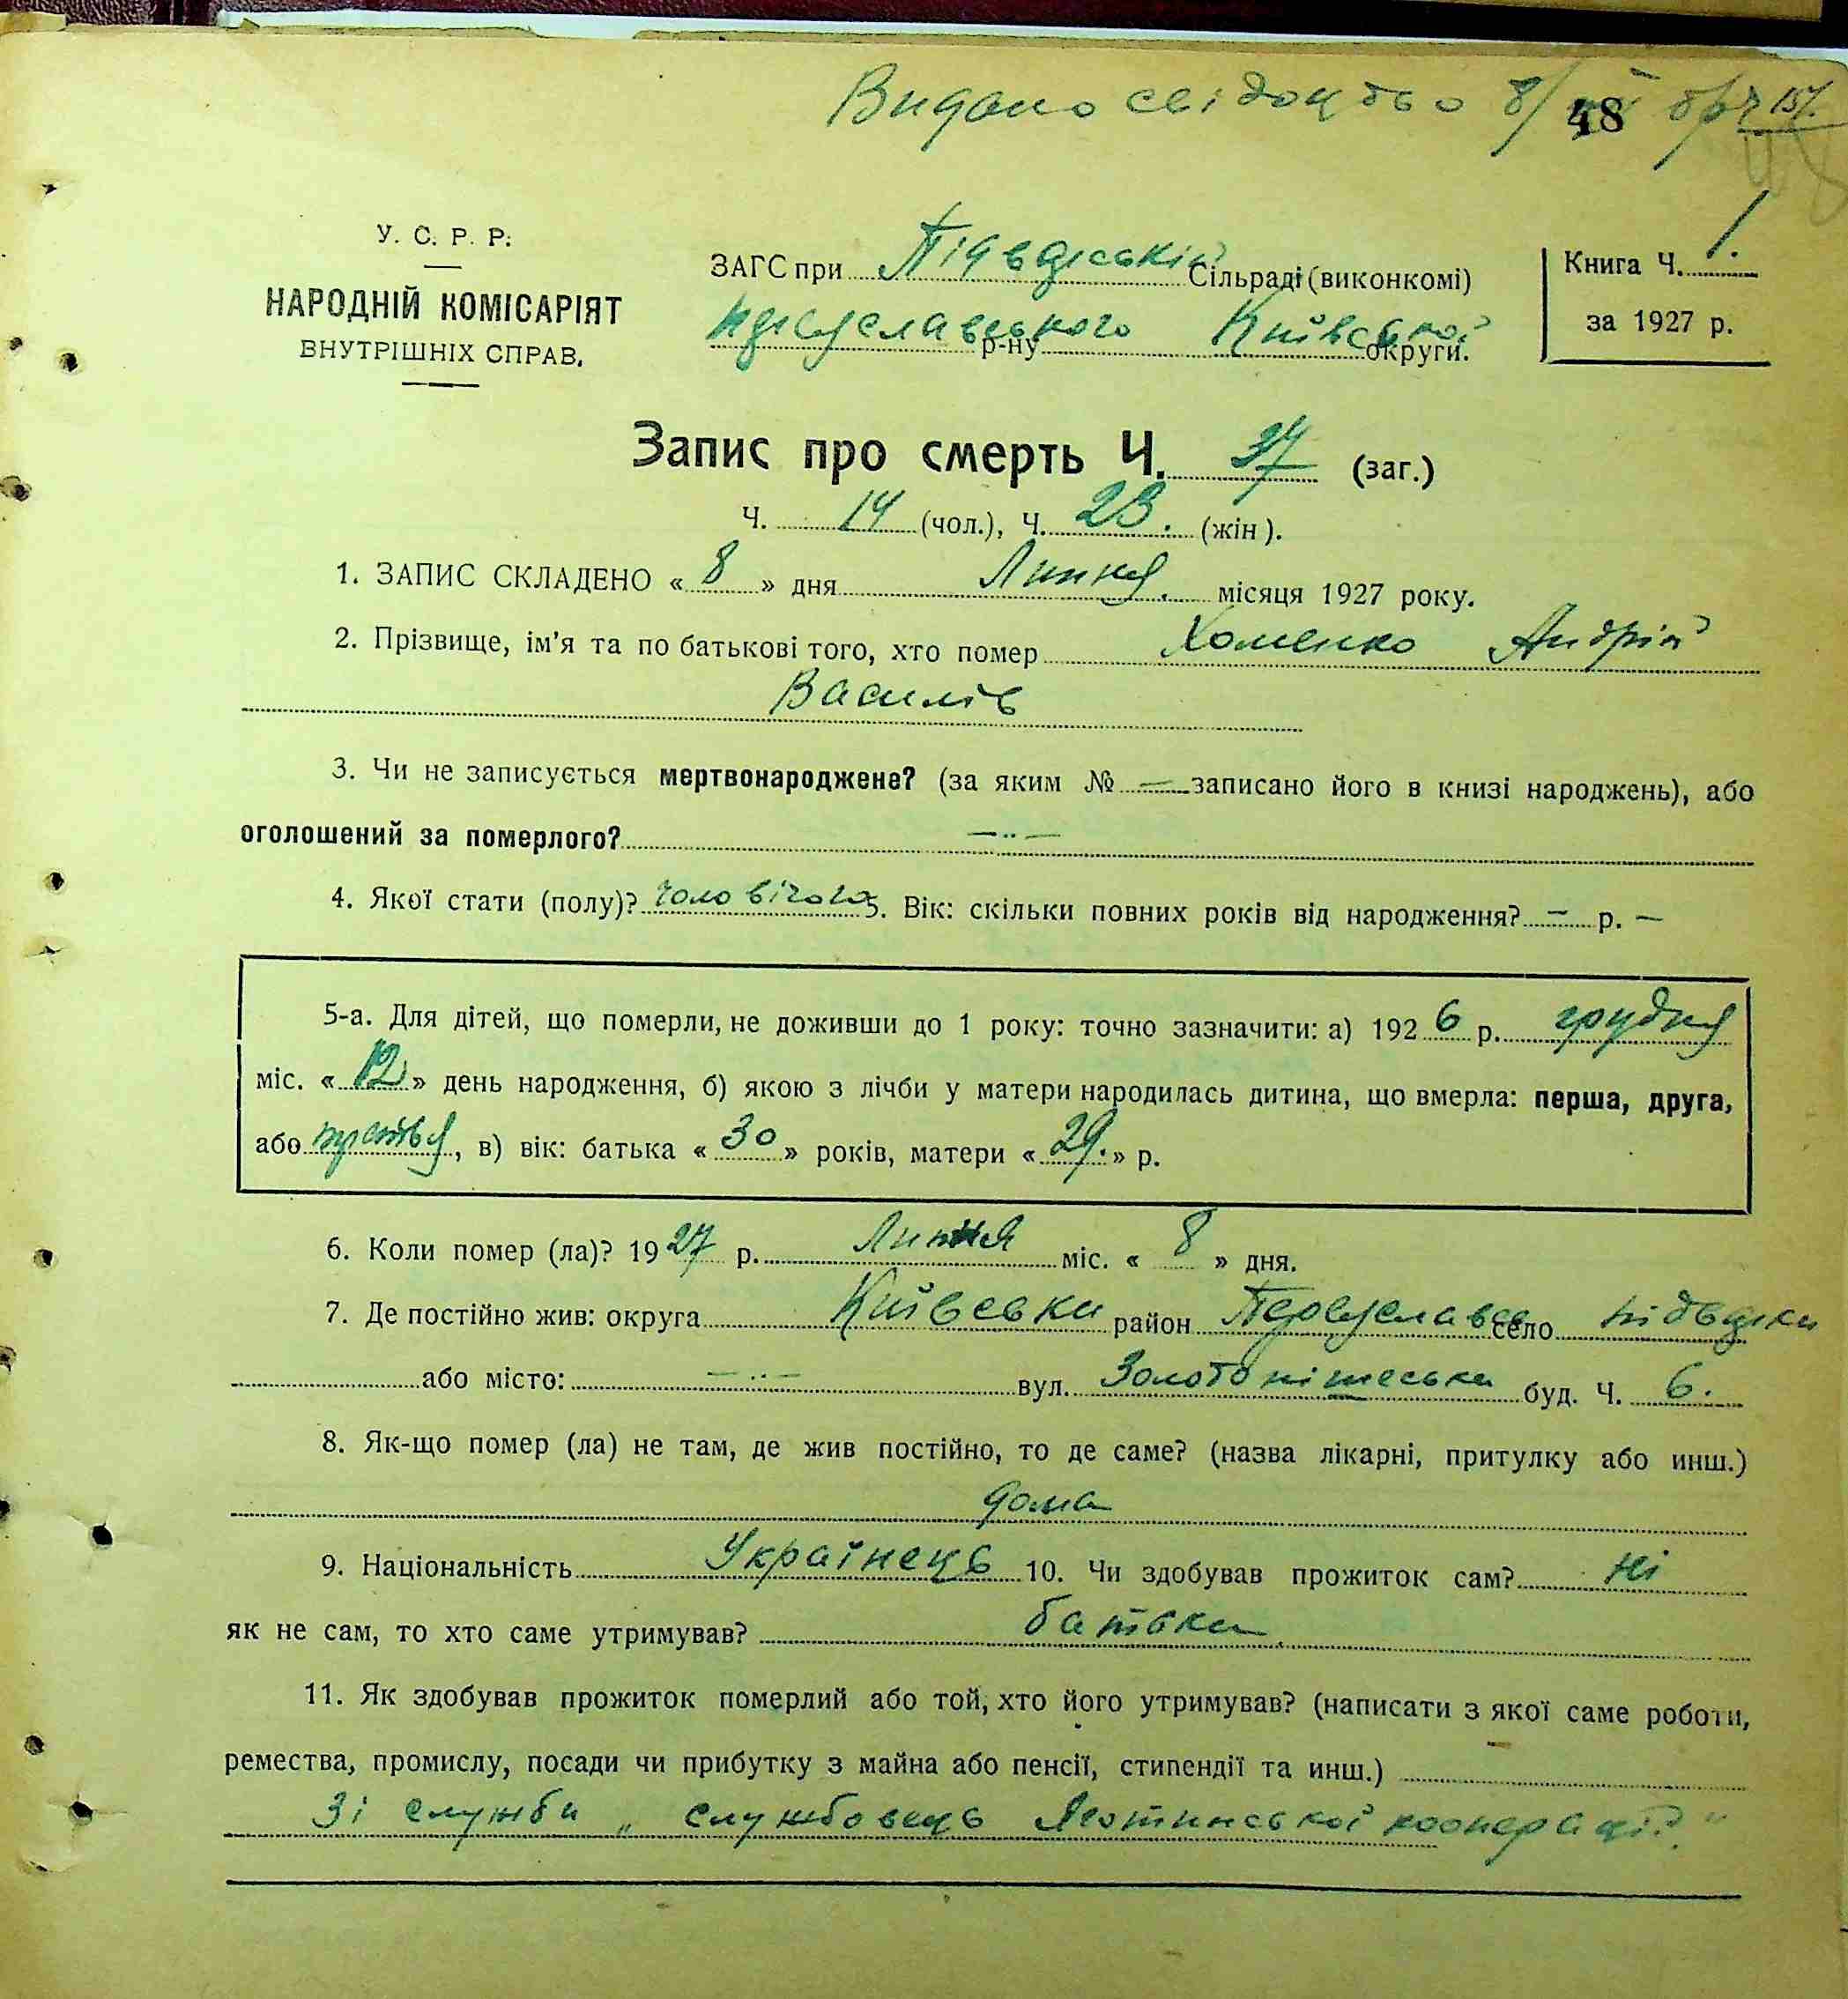 Видано свідоцтво 8/
48
У. С. Р. Р.
НАРОДНІЙ КОМІСАРІЯТ
ВНУТРІШНІХ СПРАВ.
ЗАГС при Підварській Сільраді (виконкомі)
Переяславського р-ну Київської округи.
Книга Ч. 1.
за 1927 р.
Запис про смерть Ч. 37 (заг.)
Ч. 14 (чол.), Ч. 23. (жін).
1. ЗАПИС СКЛАДЕНО « 8 » дня Липня. місяця 1927 року.
2. Прізвище, ім'я та по батькові того, хто помер Хоменко Андрій
Василів
3. Чи не записується мертвонароджене? (за яким № — записано його в книзі народжень), або
оголошений за померлого? —"—
4. Якої стати (полу)? чоловічого 5. Вік: скільки повних років від народження? — р. —
5-а. Для дітей, що померли, не доживши до 1 року: точно зазначити: а) 1926 р. грудня
міс. « 12 » день народження, б) якою з лічби у матери народилась дитина, що вмерла: перша, друга,
або третья, в) вік: батька « 30 » років, матери « 29. » р.
6. Коли помер (ла)? 1927 р. Липня міс. « 8 » дня.
7. Де постійно жив: округа Київська район Переяславськ село Підварки
або місто: —"— вул. Золотонішська буд. Ч. 6.
8. Як-що помер (ла) не там, де жив постійно, то де саме? (назва лікарні, притулку або инш.)
дома
9. Національність Українець 10. Чи здобував прожиток сам? Ні
як не сам, то хто саме утримував? батьки
11. Як здобував прожиток померлий або той, хто його утримував? (написати з якої саме роботи,
ремества, промислу, посади чи прибутку з майна або пенсії, стипендії та инш.)
Зі служби „ службовець кооперації"